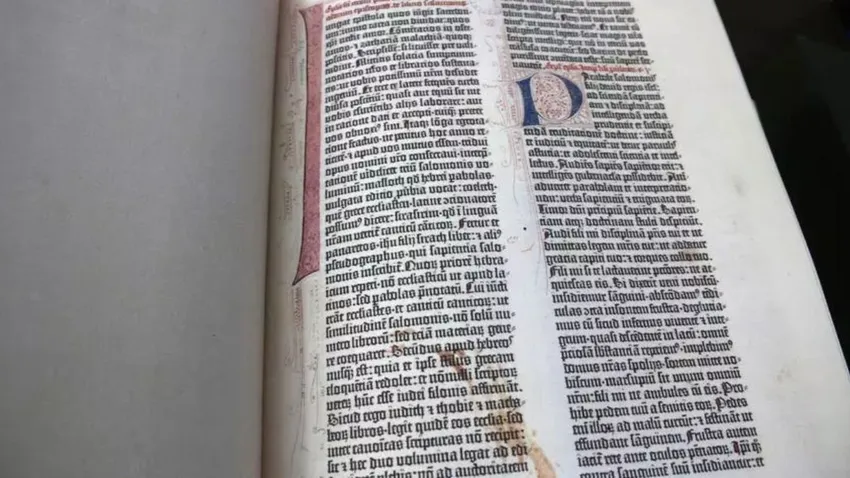 iungat epistola quos iungit sacerdo-
cium: immo carta non dividat: quos
xpi nectit amor. Cōmentarios in osee
amos · et zachariā malachiā · quoq;
poscitis. Scripsissē: si licuisset pre vali-
tudine. Mittitis solacia sumptuum ·
notarios nr̄os et librarios sustenta-
tis: ut vobis potissimū nr̄m desudet
ingeniū. Et ecce ex latere frequēs turba
diversa poscētiū: quasi aut equū sit me
vobis esurientibz alijs laborare: aut
in ratione dati et accepti · cuiq; preter
vos obnoxi9 sim. Itaq; lōga egrota-
tione fractus · ne penitus hoc anno re-
ticerē · et apud vos mutus essem · tridui
opus nomini vr̄o consecravi · interp̄-
tationē videlicet triū salomonis vo-
luminū: masloth qd̄ hebrei pabolas ·
vulgata editio p̄verbia vocat: coeleth ·
quē grece ecclesiasten · latine ɔcionatorē
possum9 dicere: sirasirim · qd̄ ī linguā
nr̄am vertit̄ canticū cāticoꝝ. Fertur et
panaretos · ihu filij sirach liber: et ali9
pseudographus · qui sapientia salo-
monis inscribit̄. Quoꝝ priorē hebra-
icum reperi · nō ecclesiasticū ut apud la-
tinos: sed pabolas p̄notatū. Cui iūcti
erāt ecclesiastes · et canticū canticoꝝ: ut
similitudinē salomonis · nō solū nu-
mero librorū: sed eciā materiaꝝ gene-
re coequaret. Secūdus apud hebreos
nusq̄ est: quia et ipse stilus grecam
eloquētiā redolet: et nōnulli scriptoꝝ
veterū hūc esse iudei filonis affirmāt.
Sicut ergo iudith et thobie et macha-
beoꝝ libros · legit quidē eos ecclesia · sed
inter canonicas scripturas nō recipit:
sic et hec duo volumina legat ad edi-
ficationē plebis: nō ad auctoritatem
Parabole salomonis
filij david regis isrl̄:
ad sciendā sapienciā
et disciplinā: ad
intelligendā verba
prudentie et suscipi-
endā eruditionē doctrine: iusticiā
et iudiciū et equitatē: ut detur parvulis
astutia: et adolescenti sciencia et intel-
lectus. Audiēs sapiēs sapientior erit: et
intelligēs gubernacla possidebit. Ani-
advertet parabolam et interpretatio-
nem: verba sapientiū et enigmata eoꝝ.
Timor dn̄i principiū sapiētie. Sapien-
tiam atq; doctrinam stulti despiciūt.
Audi fili mi disciplinā pr̄is tui et ne
dimittas legem mr̄is tue: ut addatur
gracia capiti tuo: et torques collo tuo.
Fili mi si te lactaverint pctōres: ne ac-
quiescas eis. Si dixerīt veni nobiscū ·
insidiemur sāguini · abscōdam9 tedi-
culas ɔtra insontem frustra · deglutia-
mus eū sicut infernus viventē et inte-
grum · quasi descēdentē in lacū: omnē
p̄ciosā substātiā reperiem9 · implebim9
domus nr̄as spolijs · sortem mitte no-
biscum · marsupiū sit unum omniū
nr̄m: fili mi ne ambules cū eis. Pro-
hibe pedem tuū a semitis eoꝝ. Pedes
eni illoꝝ ad malū currūt: et festināt ut
effundant sāguinem. Frustra autem
iacit̄ rete ante oculos pēnatoꝝ. Ip̄i qq̄
contra sanguinē suū insidiantur: et